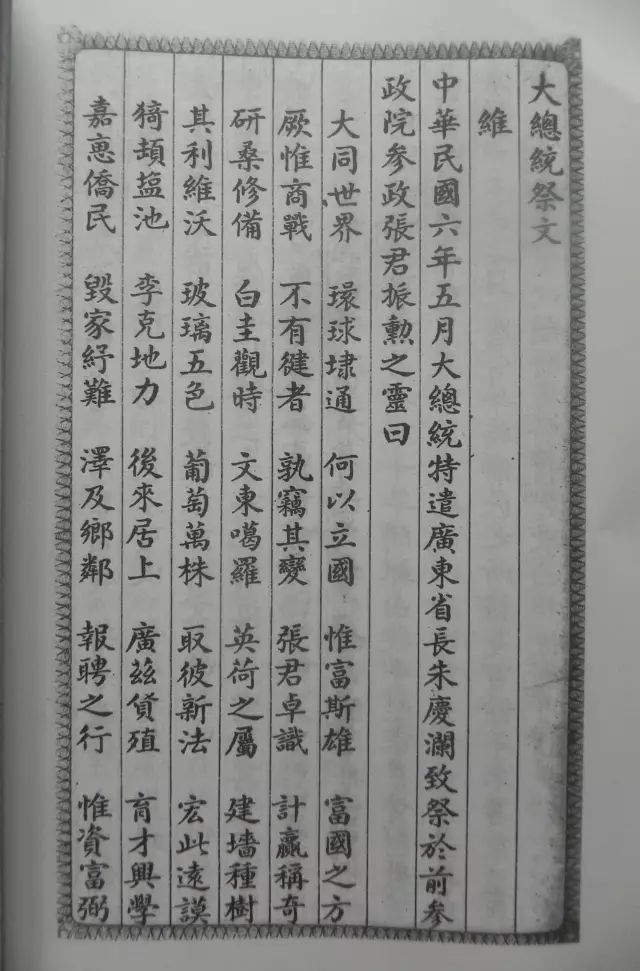 大總統祭文
維
中華民國六年五月大總統特遣廣東省長朱慶瀾致祭於前參
政院參政張君振勳之靈曰
大同世界 環球埭通 何以立國 惟富斯雄 富國之方
厥惟商戰 不有健者 孰竊其變 張君卓識 計贏稱奇
研桑修備 白圭觀時 文東噶羅 英荷之屬 建墻種樹
其利維沃 玻璃五色 葡萄萬株 取彼新法 宏此遠謨
猗頓塩池 李克地力 後來居上 廣茲貨殖 育才興學
嘉惠僑民 毀家紓難 澤及鄉鄰 報聘之行 惟資富弼